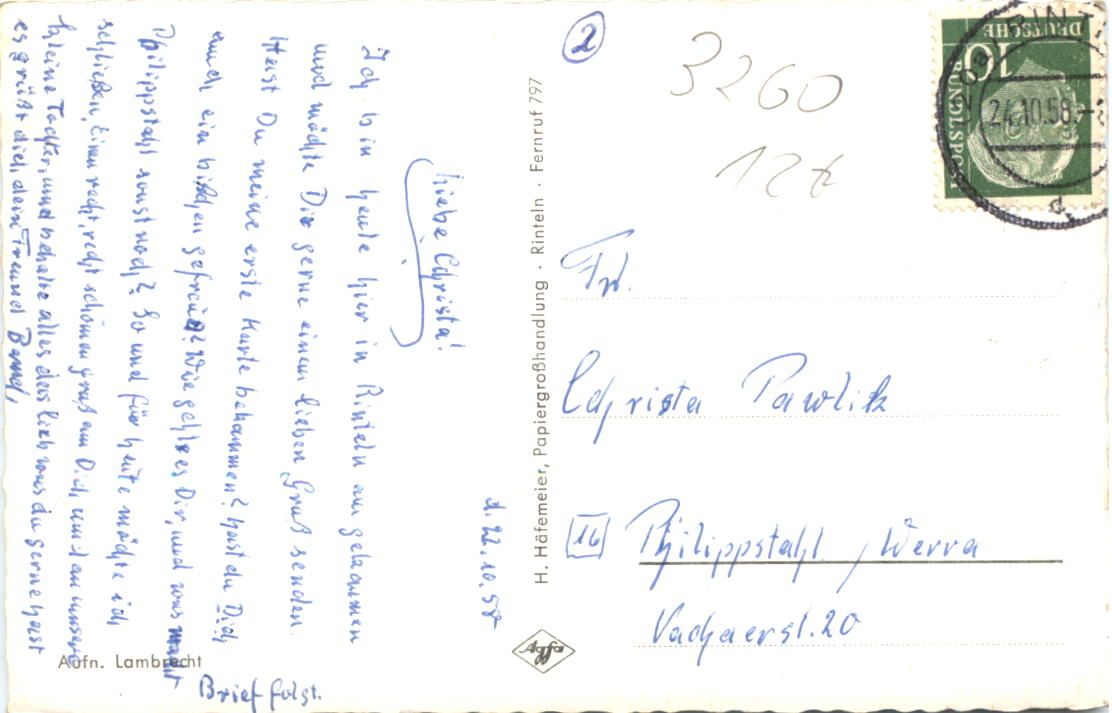 d. 22.10.58.
Liebe Christa!
Ich bin heute hier in Rinteln angekommen
und möchte Dir gerne einen lieben Gruß senden.
Hast Du meine erste Karte bekommen? hast du Dich
auch ein bißchen gefreut? Wie geht es Dir, und was macht
Philippstahl sonst noch? So und für heute möchte ich
schließen, Einen recht, recht schönen gruß an Dich, und an unsere
kleine Tochter, und behalte alles das lieb was du gerne hast
es grüßt dich dein Freund Bernd,
Brief folgt.
Aufn. Lambrecht
H. Häfemeier, Papiergroßhandlung · Rinteln · Fernruf 797
Agfa
2
3260
12
DEUTSCHE
BUNDESPOST
10
RINT
24.10.58.
d
Frl.
Christa Pawlik
16 Philippstahl / Werra
Vachaerst. 20